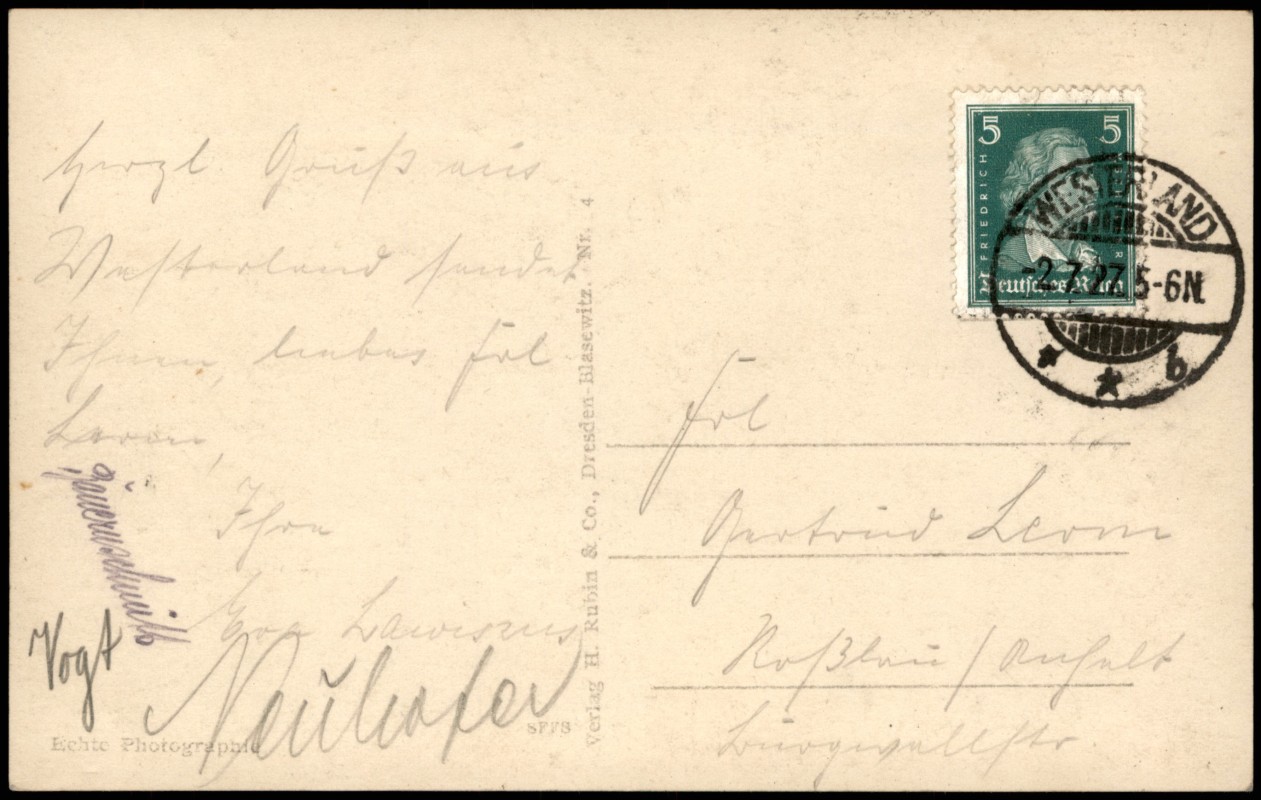 Herzl. Gruß aus
Westerland sendet
Ihnen, liebes Frl
Ihre
Eva
Vogt
Neuhofer
Echte Photographie
Verlag H. Rubin & Co., Dresden-Blasewitz. Nr. 4
5 5
FRIEDRICH
Deutsches Reich
WESTERLAND
-2.7.27. 5-6N.
* * b
Frl
Gertrud
Roßlau / Anhalt
Burgwallstr.